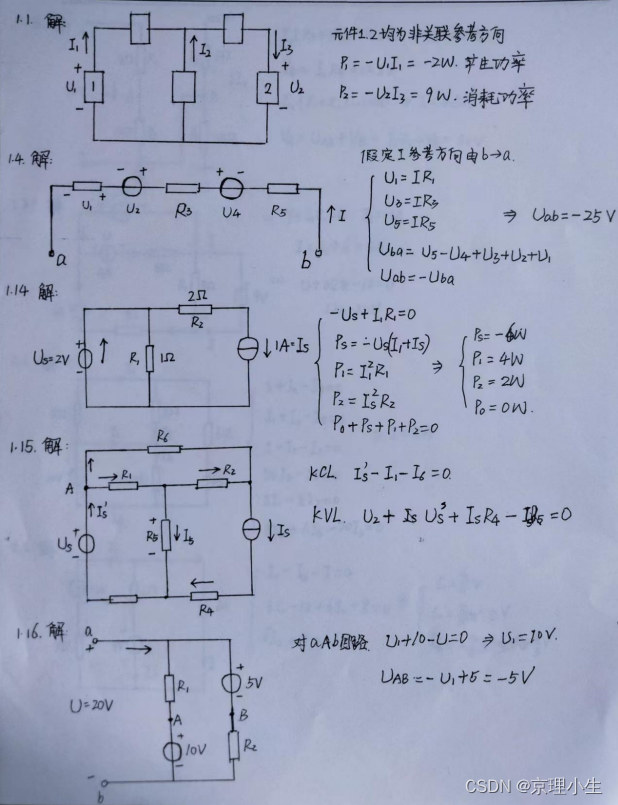 1.1. 解:
I₁ I₂ I₃
U₁ + 1 - + 2 - U₂
元件1.2均为非关联参考方向
P₁ = -U₁I₁ = -2W. 产生功率
P₂ = -U₂I₃ = 9W. 消耗功率
1.4. 解:
- U₁ + - U₂ + R₃ - U₄ + R₅
a b ↑ I
假定I参考方向由b→a.
U₁ = IR₁
U₃ = IR₃
U₅ = IR₅
Uba = U₅ - U₄ + U₃ + U₂ + U₁
Uab = -Uba
⇒ Uab = -25V
1.14 解:
2Ω
R₂
Us=2V + - R₁ 1Ω ↓ 1A=Is
-Us + I₁R₁ = 0
Ps = -Us(I₁+Is)
P₁ = I₁²R₁
P₂ = Is²R₂
P₀+Ps+P₁+P₂=0
⇒
Ps = -6W
P₁ = 4W
P₂ = 2W
P₀ = 0W.
1.15. 解:
R₆
A R₁ R₂
Is'
Us + - R₅ + - ↓ I₅ ↓ Is
R₄
KCL. Is' - I₁ - I₆ = 0.
KVL. U₂ + Us + IsR₄ - = 0
1.16. 解
a
+
U=20V
R₁ + 5V -
A B
+ 10V - R₂
-
b
对aAb回路. U₁+10-U=0 ⇒ U₁=10V.
UAB = -U₁+5 = -5V
CSDN @京理小生